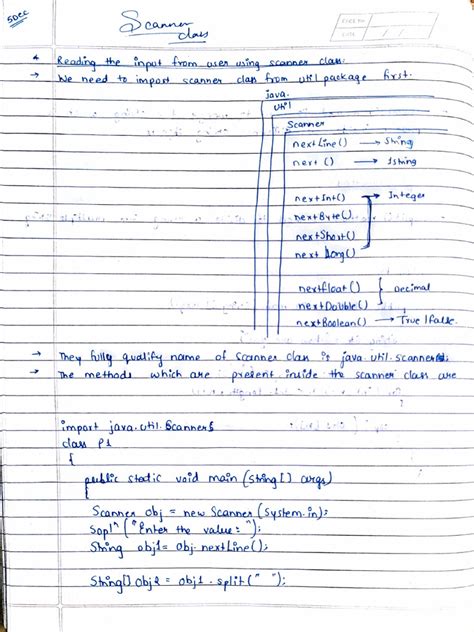 5 Dec
Scanner
class
PAGE NO
DATE / /
* Reading the input from user using scanner class.
→ We need to import scanner class from util package first.
java.
util
Scanner
nextLine() → String
next() → 1string
nextInt() → Integer
nextByte()
nextShort()
next Long()
nextfloat() } Decimal
nextDouble()
nextBoolean() → True | false.
→ They fully qualify name of scanner class is java.util.scanner;
→ The methods which are present inside the scanner class are
import java.util.Scanner;
class P1
{
public static void main (String[] args)
{
Scanner obj = new Scanner (System.in);
Sopln ("Enter the value: ");
String obj1= obj.nextLine();
String[] obj2 = obj1.split(" ");